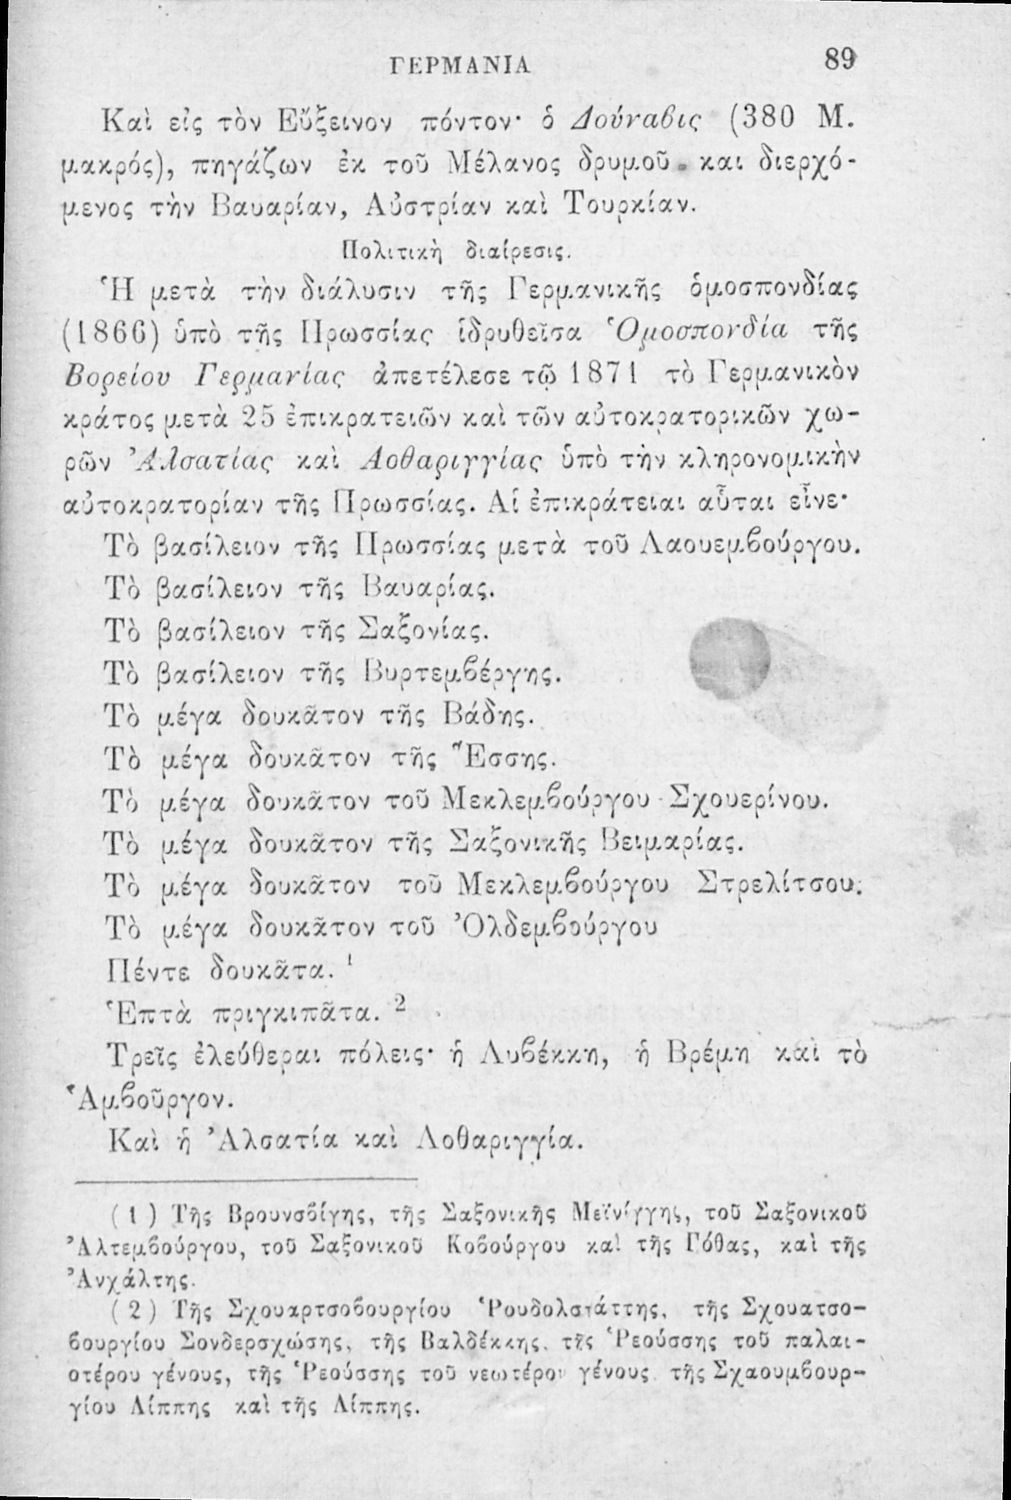 ΓΕΡΜΑΝΙΑ 89
Καὶ εἰς τὸν Εὔξεινον πόντον· ὁ Δούναβις (380 Μ.
μακρός), πηγάζων ἐκ τοῦ Μέλανος δρυμοῦ και διερχό-
μενος τὴν Βαυαρίαν, Αὐστρίαν καὶ Τουρκίαν.
Πολιτικὴ διαίρεσις.
Ἡ μετὰ τὴν διάλυσιν τῆς Γερμανικῆς ὁμοσπονδίας
(1866) ὑπὸ τῆς Πρωσσίας ἱδρυθεῖσα Ὁμοσπονδία τῆς
Βορείου Γερμανίας ἀπετέλεσε τῷ 1871 τὸ Γερμανικὸν
κράτος μετὰ 25 ἐπικρατειῶν καὶ τῶν αὐτοκρατορικῶν χω-
ρῶν Ἀλσατίας καὶ Λοθαριγγίας ὑπὸ τὴν κληρονομικὴν
αὐτοκρατορίαν τῆς Πρωσσίας. Αἱ ἐπικράτειαι αὗται εἶνε·
Τὸ βασίλειον τῆς Πρωσσίας μετὰ τοῦ Λαουεμβούργου.
Τὸ βασίλειον τῆς Βαυαρίας.
Τὸ βασίλειον τῆς Σαξονίας.
Τὸ βασίλειον τῆς Βυρτεμβέργης.
Τὸ μέγα δουκᾶτον τῆς Βάδης.
Τὸ μέγα δουκᾶτον τῆς Ἕσσης.
Τὸ μέγα δουκᾶτον τοῦ Μεκλεμβούργου Σχουερίνου.
Τὸ μέγα δουκᾶτον τῆς Σαξονικῆς Βειμαρίας.
Τὸ μέγα δουκᾶτον τοῦ Μεκλεμβούργου Στρελίτσου.
Τὸ μέγα δουκᾶτον τοῦ Ὀλδεμβούργου
Πέντε δουκᾶτα. 1
Ἑπτὰ πριγκιπᾶτα. 2
Τρεῖς ἐλεύθεραι πόλεις· ἡ Λυβέκκη, ἡ Βρέμη καὶ τὸ
Ἁμβοῦργον.
Καὶ ἡ Ἀλσατία καὶ Λοθαριγγία.
(1) Τῆς Βρουνσβίγης, τῆς Σαξονικῆς Μεϊνίγγης, τοῦ Σαξονικοῦ
Ἀλτεμβούργου, τοῦ Σαξονικοῦ Κοβούργου καὶ τῆς Γόθας, καὶ τῆς
Ἀνχάλτης.
(2) Τῆς Σχουαρτσοβουργίου Ῥουδολστάττης, τῆς Σχουατσο-
βουργίου Σονδερσχώσης, τῆς Βαλδέκκης, τῆς Ῥεούσσης τοῦ παλαι-
οτέρου γένους, τῆς Ῥεούσσης τοῦ νεωτέρου γένους τῆς Σχαουμβουρ-
γίου Λίππης καὶ τῆς Λίππης.